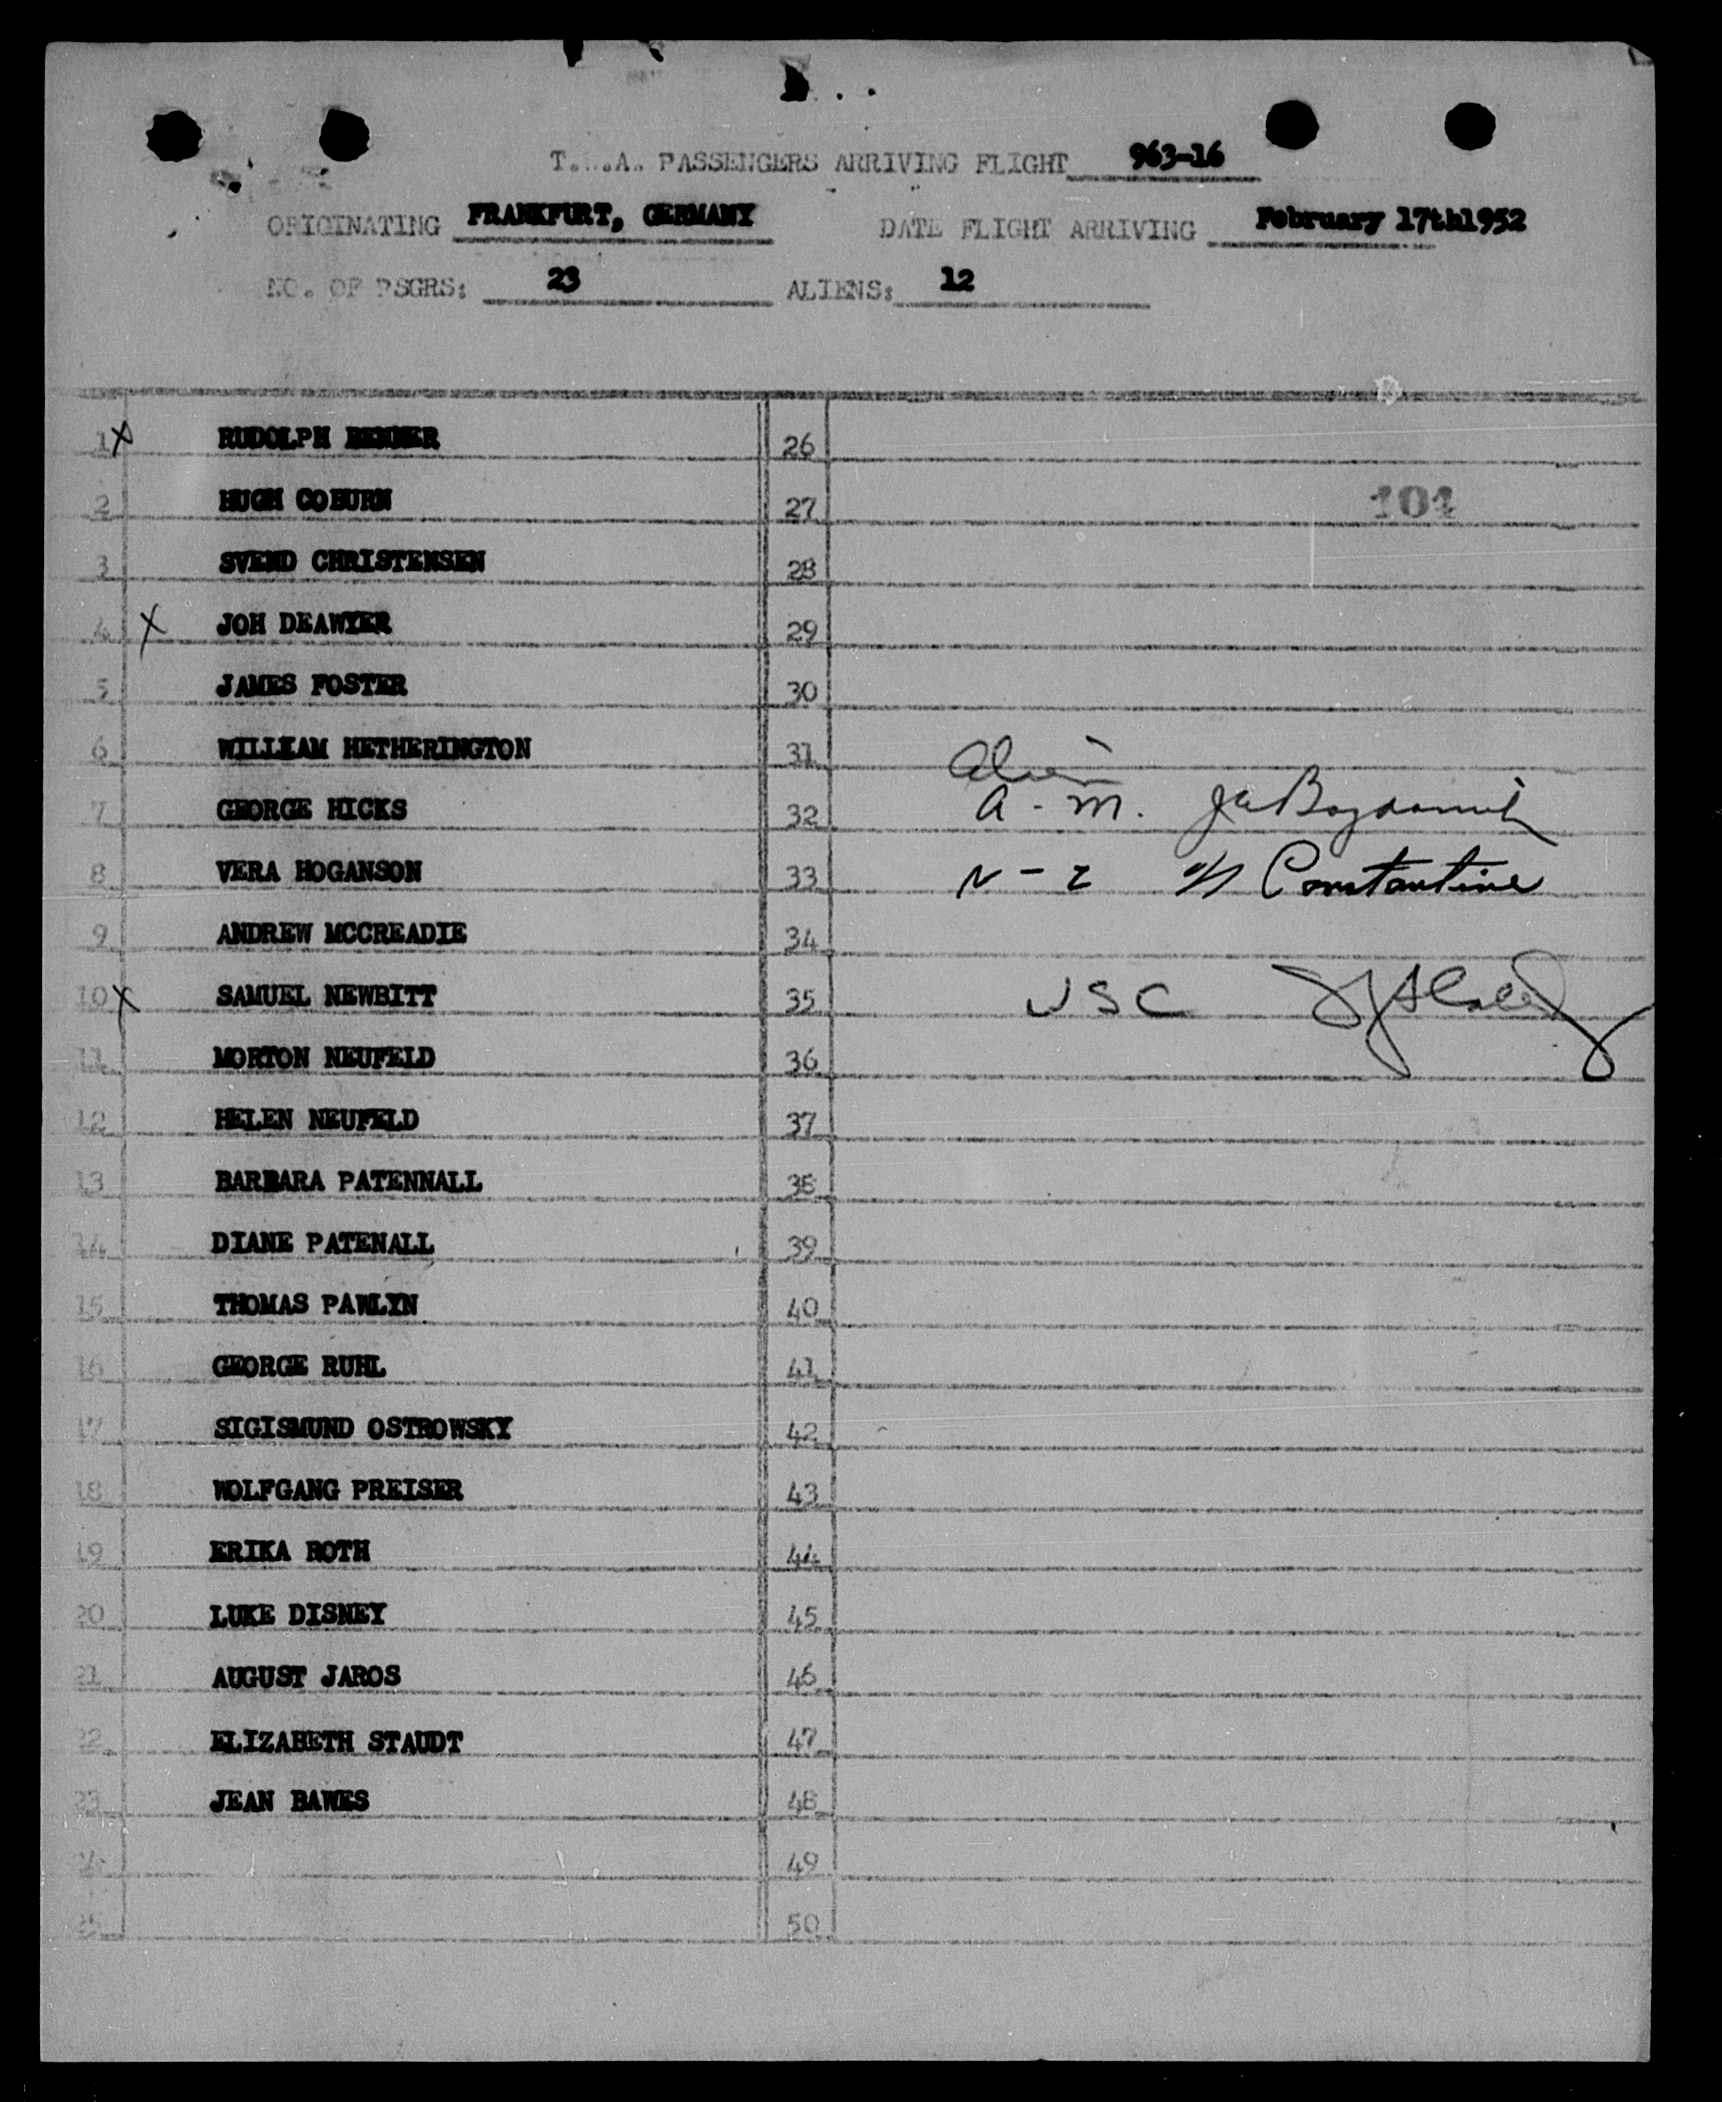 T.W.A. PASSENGERS ARRIVING FLIGHT 963-16
ORIGINATING FRANKFURT, GERMANY DATE FLIGHT ARRIVING February 17th1952
NO. OF PSGRS: 23 ALIENS: 12
1 X RUDOLPH 26
2 HUGH COBURN 27 101
3 SVEND CHRISTENSEN 28
4 X JOH DEAWYER 29
5 JAMES FOSTER 30
6 WILLIAM HETHERINGTON 31 Alien
7 GEORGE HICKS 32 A - M.
8 VERA HOGANSON 33 N - Z Constantine
9 ANDREW MCCREADIE 34
10 X SAMUEL NEWBITT 35 USC
11 MORTON NEUFELD 36
12 HELEN NEUFELD 37
13 BARBARA PATENNALL 38
14 DIANE PATENALL 39
15 THOMAS PAWLYN 40
16 GEORGE RUHL 41
17 SIGISMUND OSTROWSKY 42
18 WOLFGANG PREISER 43
19 ERIKA ROTH 44
20 LUKE DISNEY 45
21 AUGUST JAROS 46
22 ELIZABETH STAUDT 47
23 JEAN BAWES 48
24 49
25 50